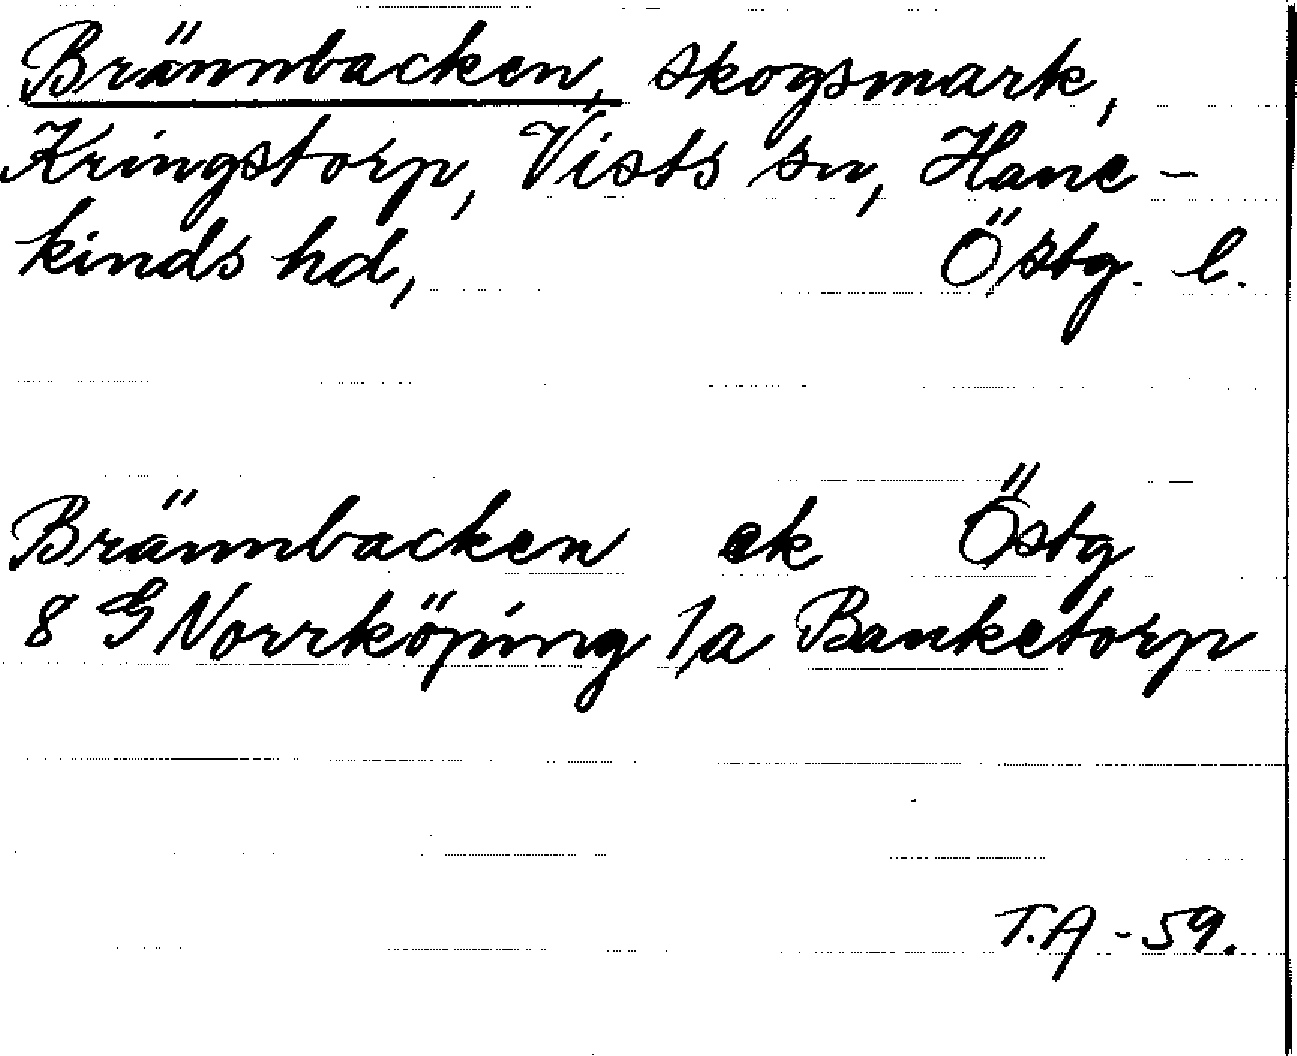 Brännbacken, skogsmark,
Kringstorp, Vists sn, Hane-
kinds hd, Östg. l.
Brännbacken ek Östg
8 G Norrköping 1/a Banketorp
T.A -59.